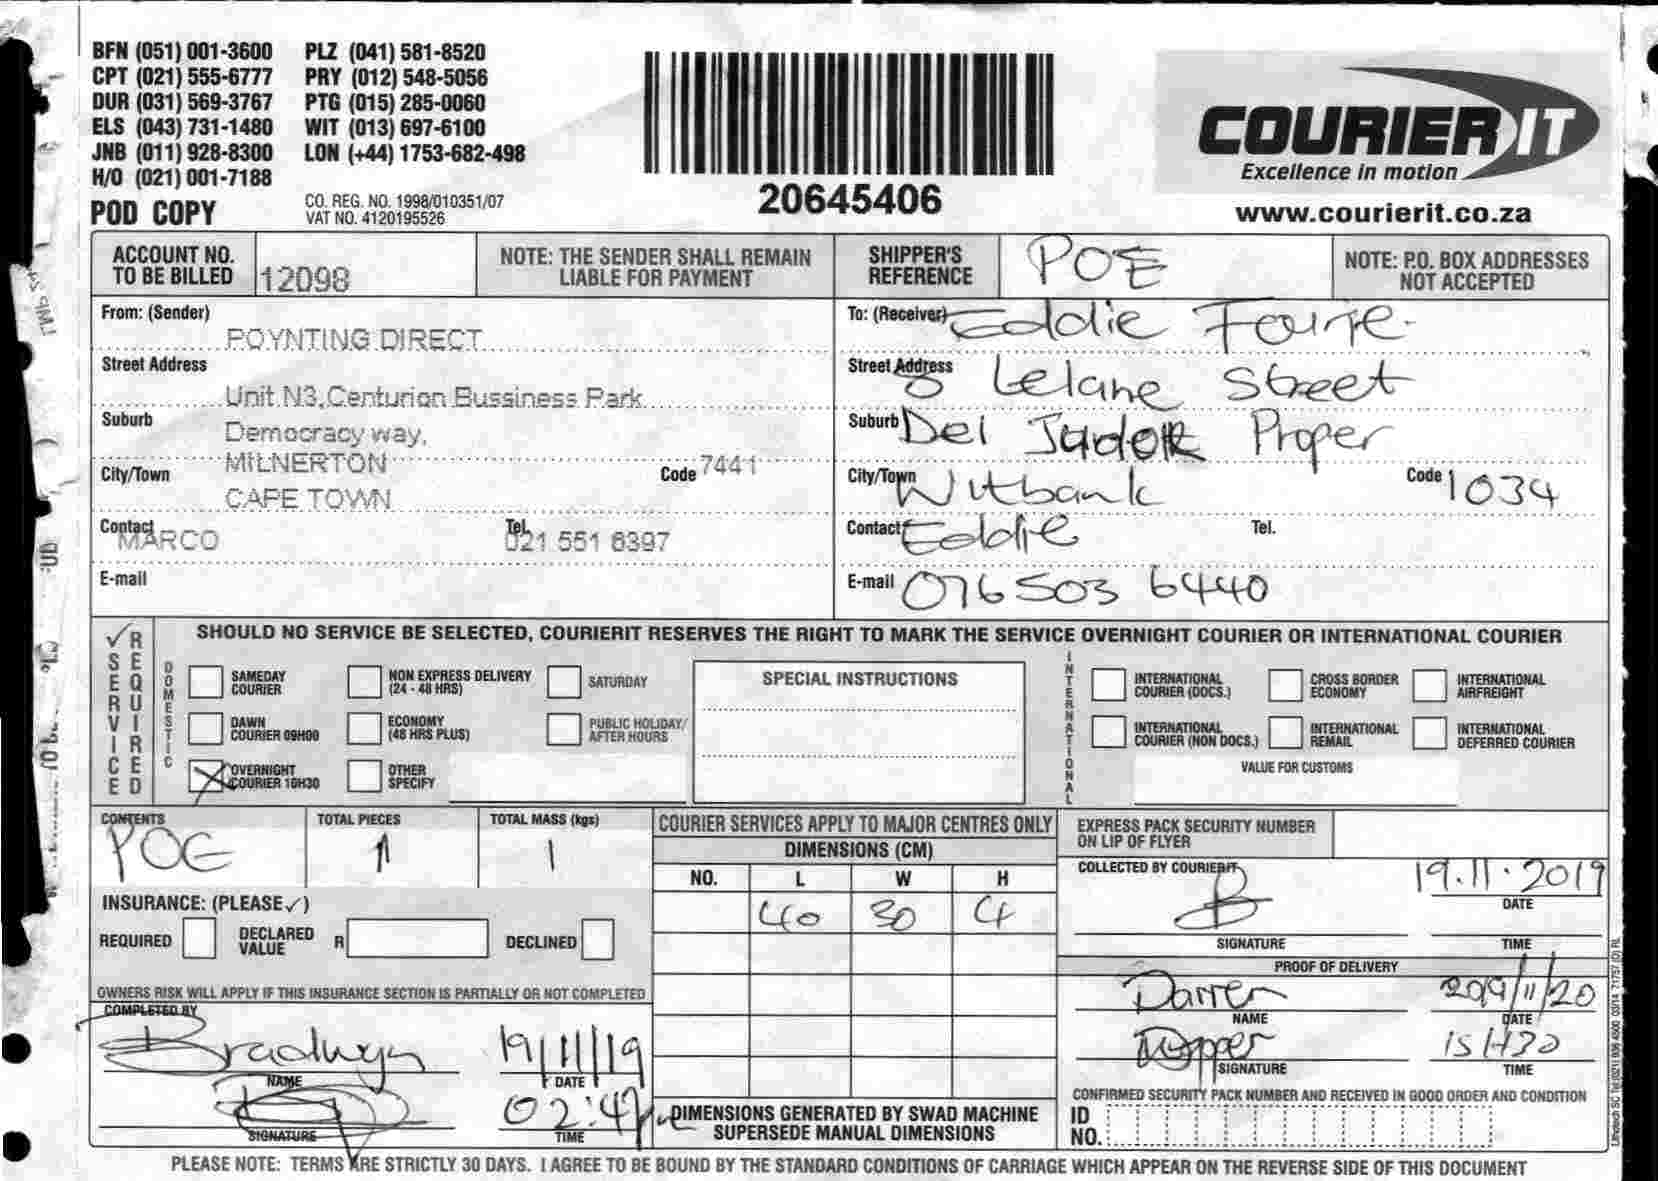 BFN (051) 001-3600 PLZ (041) 581-8520
CPT (021) 555-6777 PRY (012) 548-5056
DUR (031) 569-3767 PTG (015) 285-0060
ELS (043) 731-1480 WIT (013) 697-6100
JNB (011) 928-8300 LON (+44) 1753-682-498
H/O (021) 001-7188
POD COPY
CO. REG. NO. 1998/010351/07
VAT NO. 4120195526
20645406
COURIER IT
Excellence in motion
www.courierit.co.za
ACCOUNT NO. TO BE BILLED 12098
NOTE: THE SENDER SHALL REMAIN LIABLE FOR PAYMENT
SHIPPER'S REFERENCE POE
NOTE: P.O. BOX ADDRESSES NOT ACCEPTED
From: (Sender)
POYNTING DIRECT
Street Address
Unit N3,Centurion Bussiness Park
Suburb
Democracy way,
MILNERTON
City/Town Code 7441
CAPE TOWN
Contact MARCO Tel. 021 551 8397
E-mail
To: (Receiver) Eddie
Street Address 8 Lelane Street
Suburb Del Judor Proper
City/Town Witbank Code 1034
Contact Eddie Tel.
E-mail 076 503 6440
✓ SERVICE REQUIRED
SHOULD NO SERVICE BE SELECTED, COURIERIT RESERVES THE RIGHT TO MARK THE SERVICE OVERNIGHT COURIER OR INTERNATIONAL COURIER
DOMESTIC
SAMEDAY COURIER
NON EXPRESS DELIVERY (24 - 48 HRS)
SATURDAY
DAWN COURIER 09H00
ECONOMY (48 HRS PLUS)
PUBLIC HOLIDAY/ AFTER HOURS
X OVERNIGHT COURIER 10H30
OTHER SPECIFY
SPECIAL INSTRUCTIONS
INTERNATIONAL
INTERNATIONAL COURIER (DOCS.)
CROSS BORDER ECONOMY
INTERNATIONAL AIRFREIGHT
INTERNATIONAL COURIER (NON DOCS.)
INTERNATIONAL REMAIL
INTERNATIONAL DEFERRED COURIER
VALUE FOR CUSTOMS
CONTENTS POE
TOTAL PIECES 1
TOTAL MASS (kgs) 1
INSURANCE: (PLEASE ✓)
REQUIRED DECLARED VALUE R DECLINED
OWNERS RISK WILL APPLY IF THIS INSURANCE SECTION IS PARTIALLY OR NOT COMPLETED
COMPLETED BY
Bradwyn 19/11/19
NAME DATE
SIGNATURE TIME
COURIER SERVICES APPLY TO MAJOR CENTRES ONLY
DIMENSIONS (CM)
NO. L W H
40 30 4
DIMENSIONS GENERATED BY SWAD MACHINE
SUPERSEDE MANUAL DIMENSIONS
EXPRESS PACK SECURITY NUMBER ON LIP OF FLYER
COLLECTED BY COURIERIT
19.11.2019
DATE
SIGNATURE TIME
PROOF OF DELIVERY
Darren 2019/11/20
NAME DATE
15H30
SIGNATURE TIME
CONFIRMED SECURITY PACK NUMBER AND RECEIVED IN GOOD ORDER AND CONDITION
ID NO.
PLEASE NOTE: TERMS ARE STRICTLY 30 DAYS. I AGREE TO BE BOUND BY THE STANDARD CONDITIONS OF CARRIAGE WHICH APPEAR ON THE REVERSE SIDE OF THIS DOCUMENT